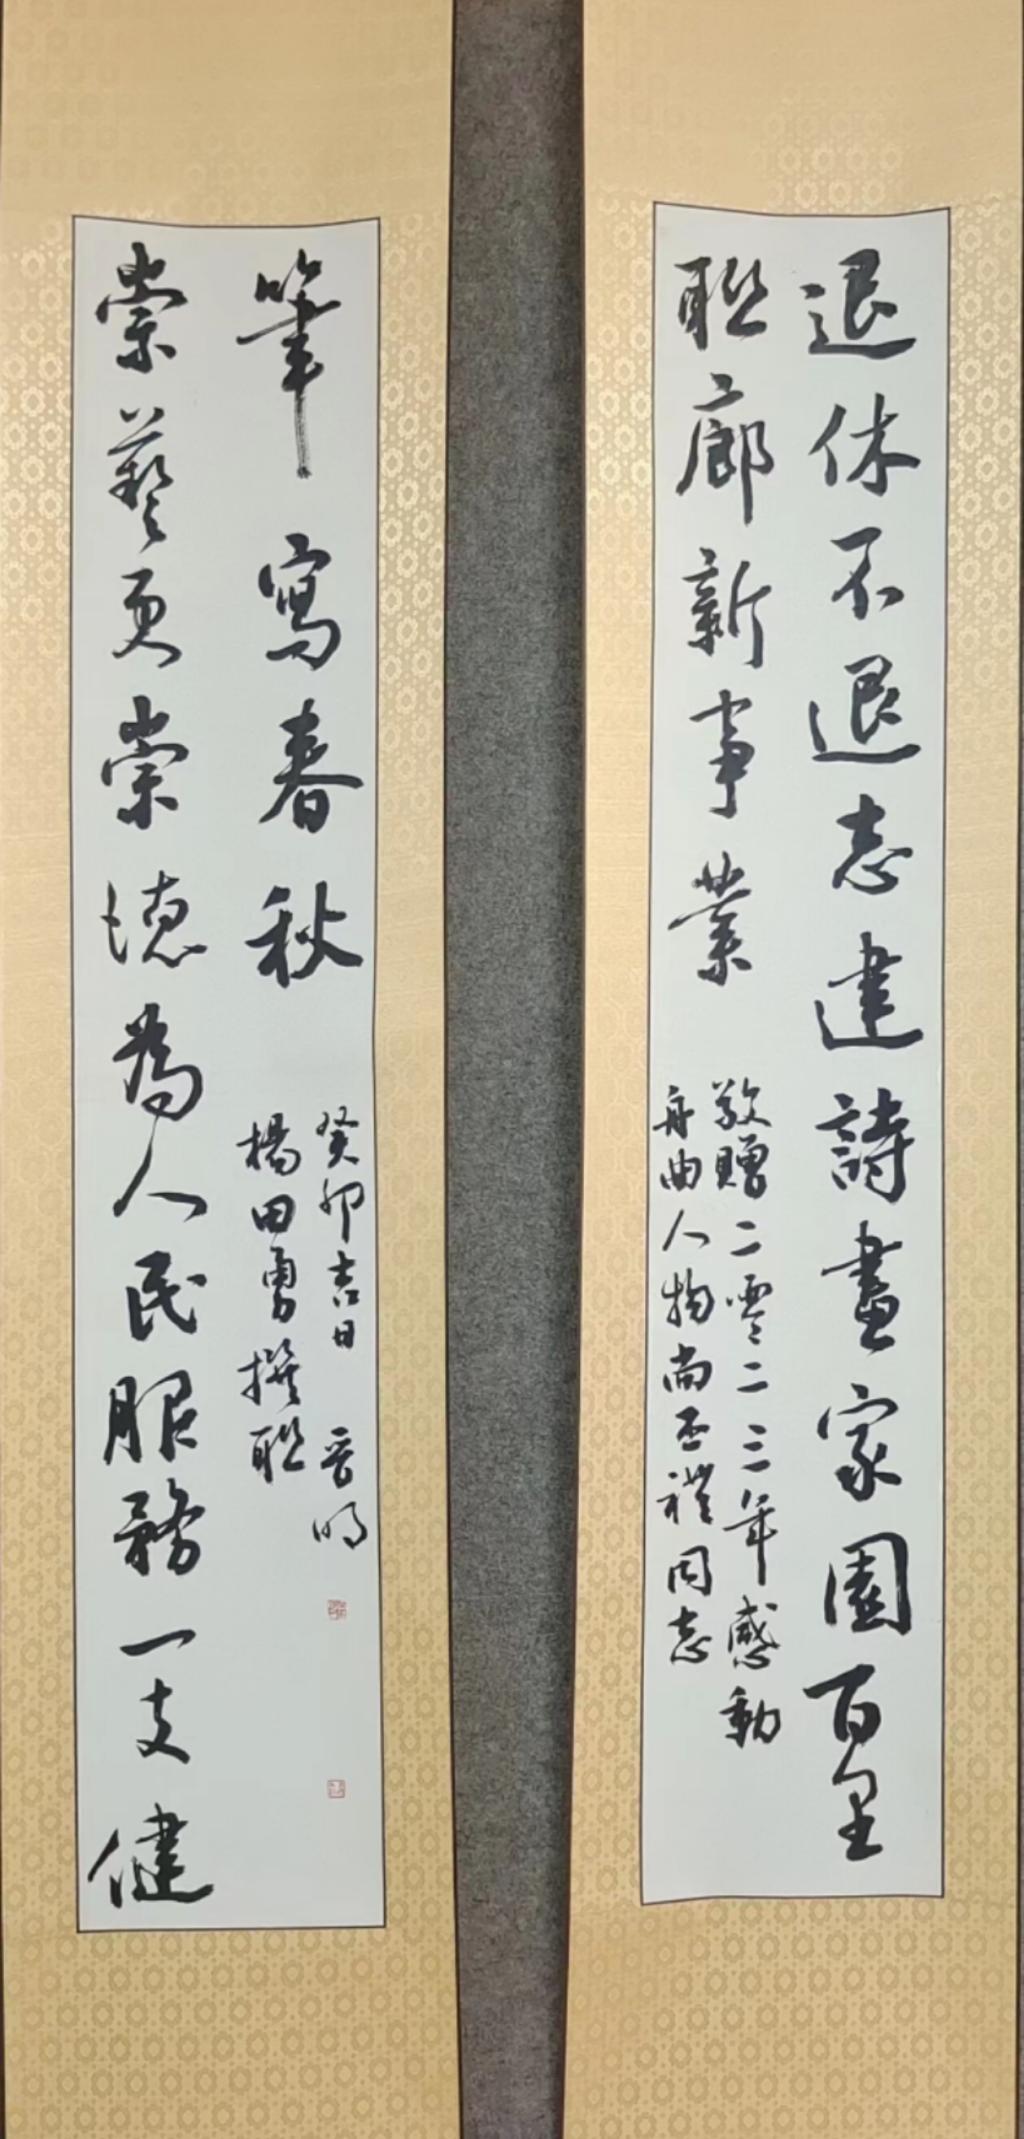 退休不退志建詩畫家園百里
聯廊新事業
敬贈二零二三年感動
舟曲人物尚丕禮同志
崇藝更崇德為人民服務一支健
筆寫春秋
癸卯吉日 晉明
楊田勇撰聯